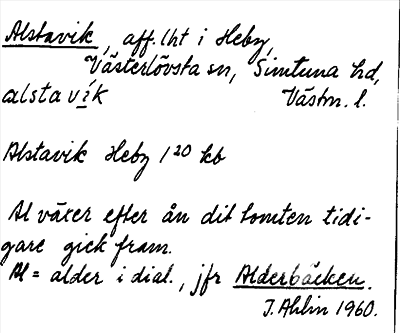 Alstavik, aff. lht i Heby,
Västerlövsta sn, Simtuna hd,
alstavík Västm. l.
Alstavik Heby 1²⁰ kb
Al växer efter ån dit tomten tidi-
gare gick fram.
Al = alder i dial., jfr Alderbäcken.
J. Ahlin 1960.